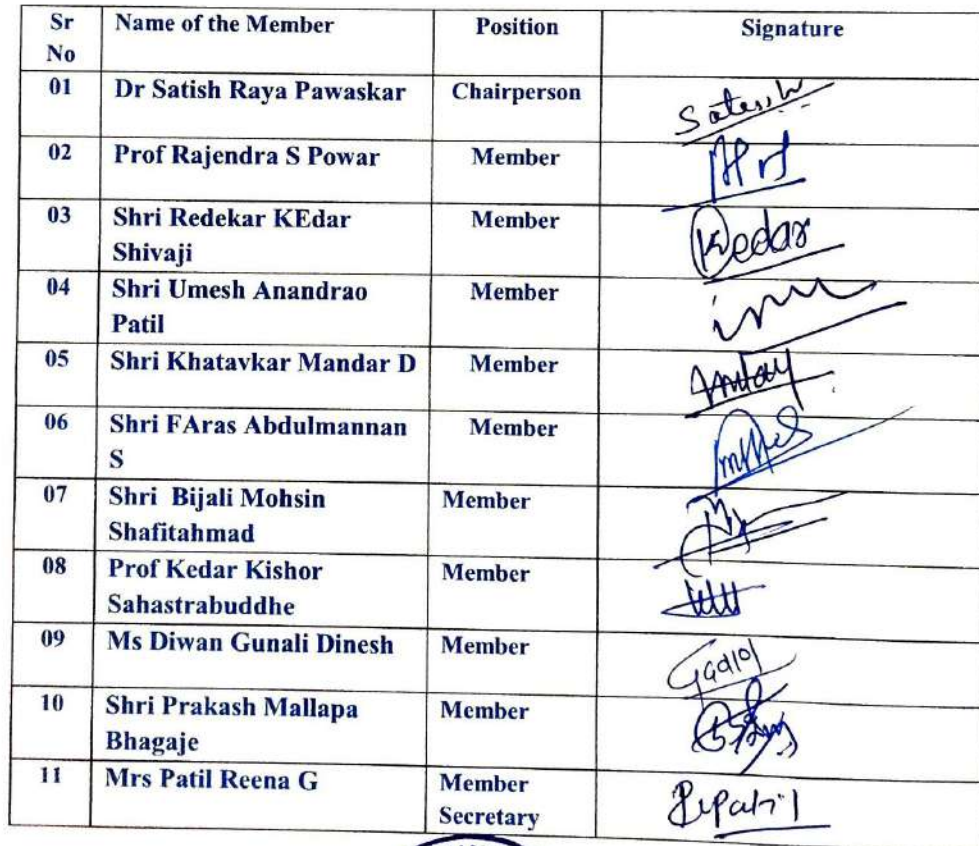 Sr No Name of the Member Position Signature
01 Dr Satish Raya Pawaskar Chairperson Satish
02 Prof Rajendra S Powar Member
03 Shri Redekar KEdar Member Kedar
Shivaji
04 Shri Umesh Anandrao Member
Patil
05 Shri Khatavkar Mandar D Member
06 Shri FAras Abdulmannan Member
S
07 Shri Bijali Mohsin Member
Shafitahmad
08 Prof Kedar Kishor Member
Sahastrabuddhe
09 Ms Diwan Gunali Dinesh Member
10 Shri Prakash Mallapa Member
Bhagaje
11 Mrs Patil Reena G Member Rpatil
Secretary